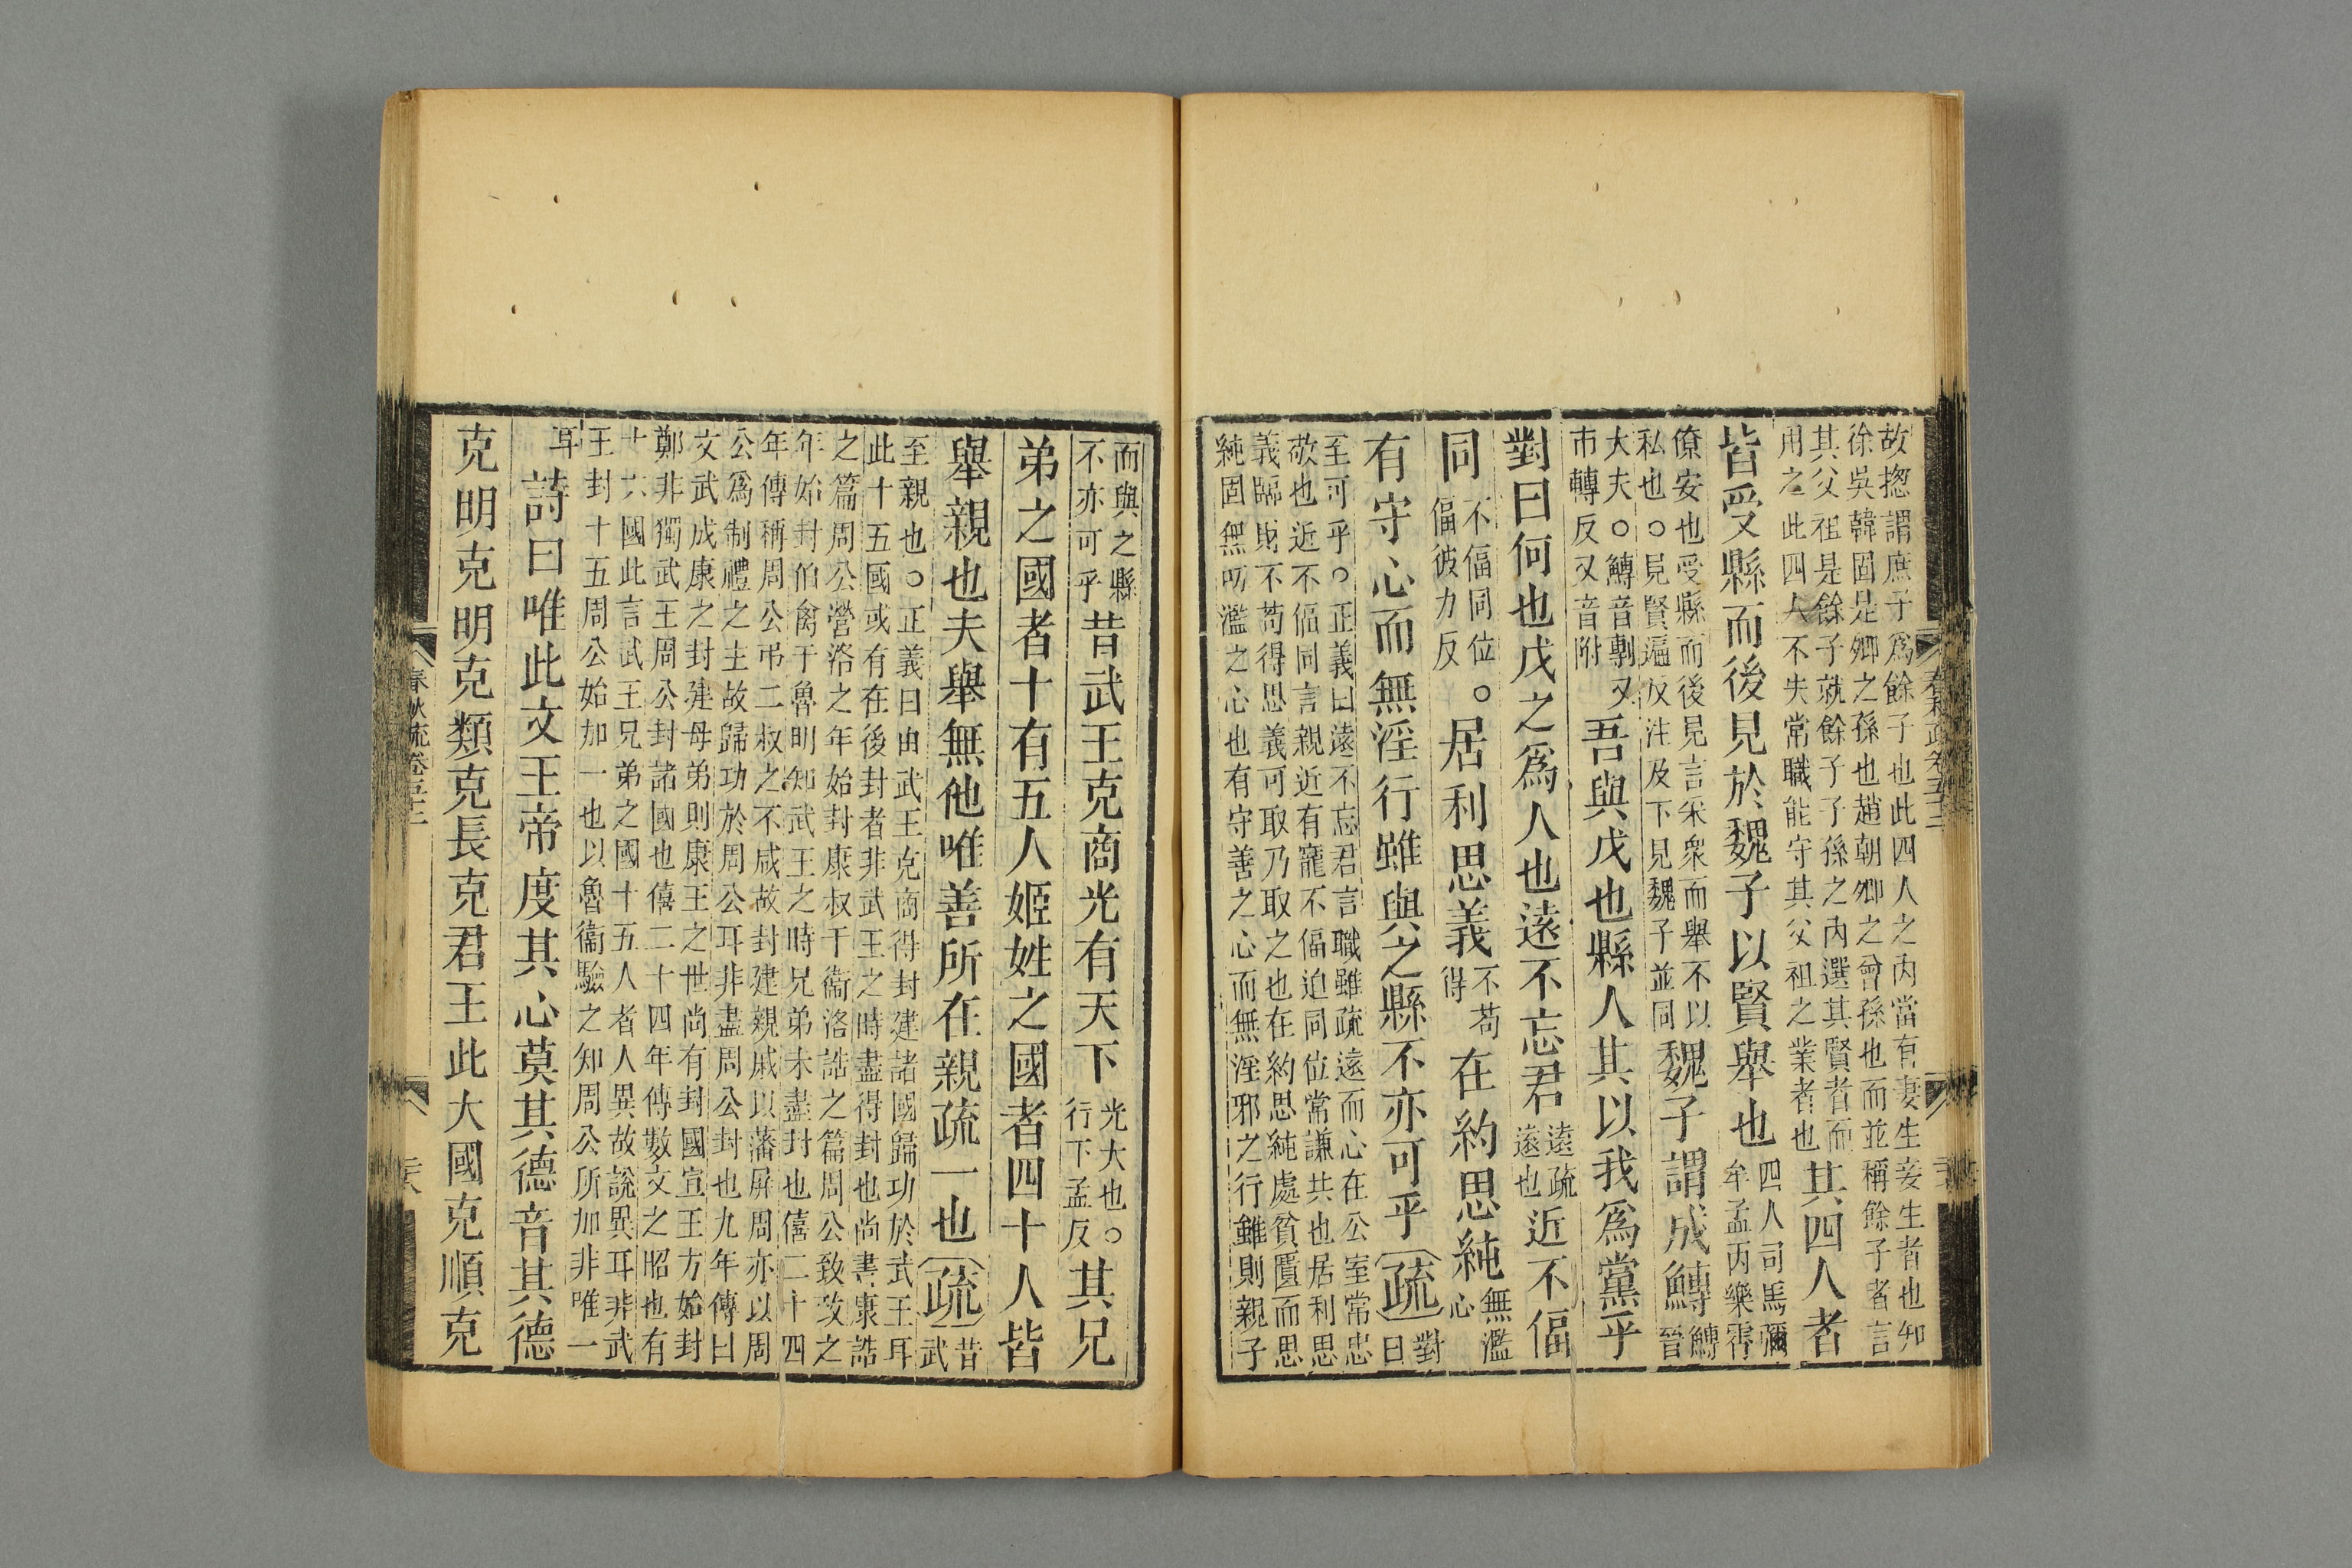 故揔謂庶子爲餘子也此四人之內當有妻生妾生者也知
徐吳韓固是卿之孫也趙朝卿之曾孫也而並稱餘子者言
其父祖是餘子就餘子子孫之內選其賢者而
用之此四人不失常職能守其父祖之業者也
其四人者
皆受縣而後見於魏子以賢舉也
四人司馬彌
牟孟丙樂霄
僚安也受縣而後見言采衆而舉不以
私也○見賢遍反注及下見魏子並同
魏子謂成鱄
鱄
晉
大夫○鱄音剸又
市轉反又音附
吾與戊也縣人其以我爲黨乎
對曰何也戊之爲人也遠不忘君
遠疏
遠也
近不偪
同
不偪同位○
偪彼力反
居利思義
不苟
得
在約思純
無濫
心
有守心而無淫行雖與之縣不亦可乎
疏
對
曰
至可乎○正義曰遠不忘君言職雖疏遠而心在公室常忠
敬也近不偪同言親近有寵不偪迫同位常謙共也居利思
義臨財不苟得思義可取乃取之也在約思純處貧匱而思
純固無叨濫之心也有守善之心而無淫邪之行雖則親子
而與之縣
不亦可乎
昔武王克商光有天下
光大也○
行下孟反
其兄
弟之國者十有五人姬姓之國者四十人皆
舉親也夫舉無他唯善所在親疏一也
疏
昔
武
至親也○正義曰由武王克商得封建諸國歸功於武王耳
此十五國或有在後封者非武王之時盡得封也尚書康誥
之篇周公營洛之年始封康叔于衞洛誥之篇周公致政之
年始封伯禽于魯明知武王之時兄弟未盡封也僖二十四
年傳稱周公弔二叔之不咸故封建親戚以藩屏周亦以周
公爲制禮之主故歸功於周公耳非盡周公封也九年傳曰
文武成康之封建母弟則康王之世尚有封國宣王方始封
鄭非獨武王周公封諸國也僖二十四年傳數文之昭也有
十六國此言武王兄弟之國十五人者人異故說異耳非武
王封十五周公始加一也以魯衞驗之知周公所加非唯一
耳
詩曰唯此文王帝度其心莫其德音其德
克明克明克類克長克君王此大國克順克
春秋疏卷五十二